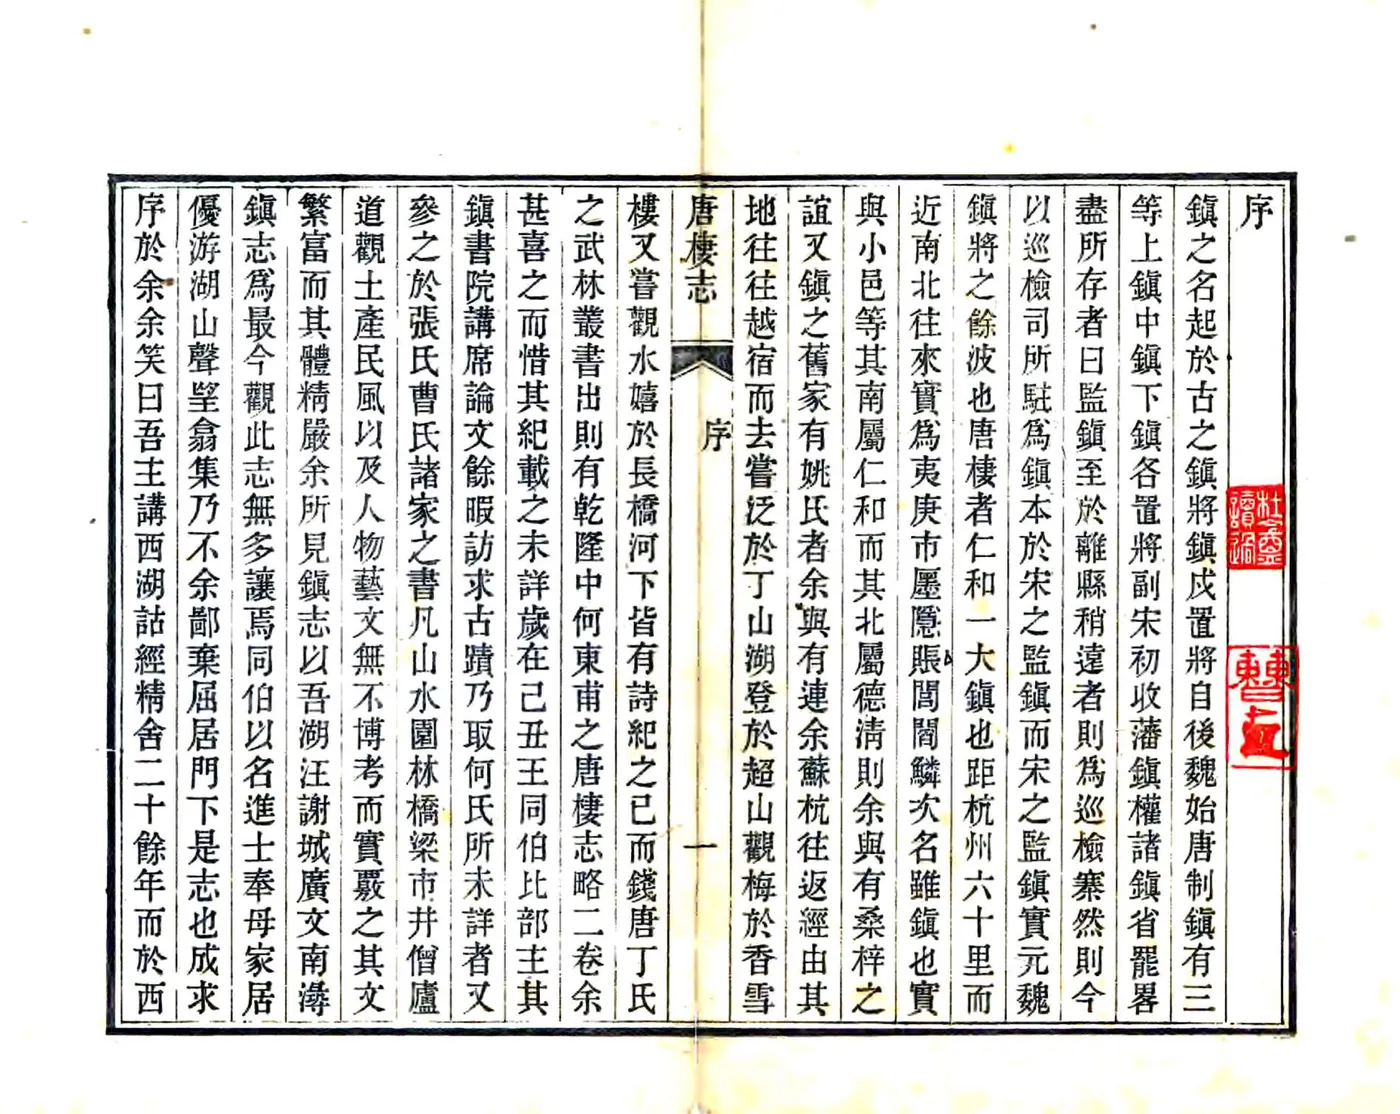 序
鎮之名起於古之鎮將鎮戍置將自後魏始唐制鎮有三
等上鎮中鎮下鎮各置將副宋初收藩鎮權諸鎮省罷畧
盡所存者曰監鎮至於離縣稍遠者則爲巡檢寨然則今
以巡檢司所駐爲鎮本於宋之監鎮而宋之監鎮實元魏
鎮將之餘波也唐棲者仁和一大鎮也距杭州六十里而
近南北往來實爲夷庚市廛隱賑閭閻鱗次名雖鎮也實
與小邑等其南屬仁和而其北屬德清則余與有桑梓之
誼又鎮之舊家有姚氏者余與有連余蘇杭往返經由其
地往往越宿而去嘗泛於丁山湖登於超山觀梅於香雪
唐棲志
序
一
樓又嘗觀水嬉於長橋河下皆有詩紀之已而錢唐丁氏
之武林叢書出則有乾隆中何東甫之唐棲志略二卷余
甚喜之而惜其紀載之未詳歲在己丑王同伯比部主其
鎮書院講席論文餘暇訪求古蹟乃取何氏所未詳者又
參之於張氏曹氏諸家之書凡山水園林橋梁市井僧廬
道觀土產民風以及人物藝文無不博考而實覈之其文
繁富而其體精嚴余所見鎮志以吾湖汪謝城廣文南潯
鎮志爲最今觀此志無多讓焉同伯以名進士奉母家居
優游湖山聲望翕集乃不余鄙棄屈居門下是志也成求
序於余余笑曰吾主講西湖詁經精舍二十餘年而於西